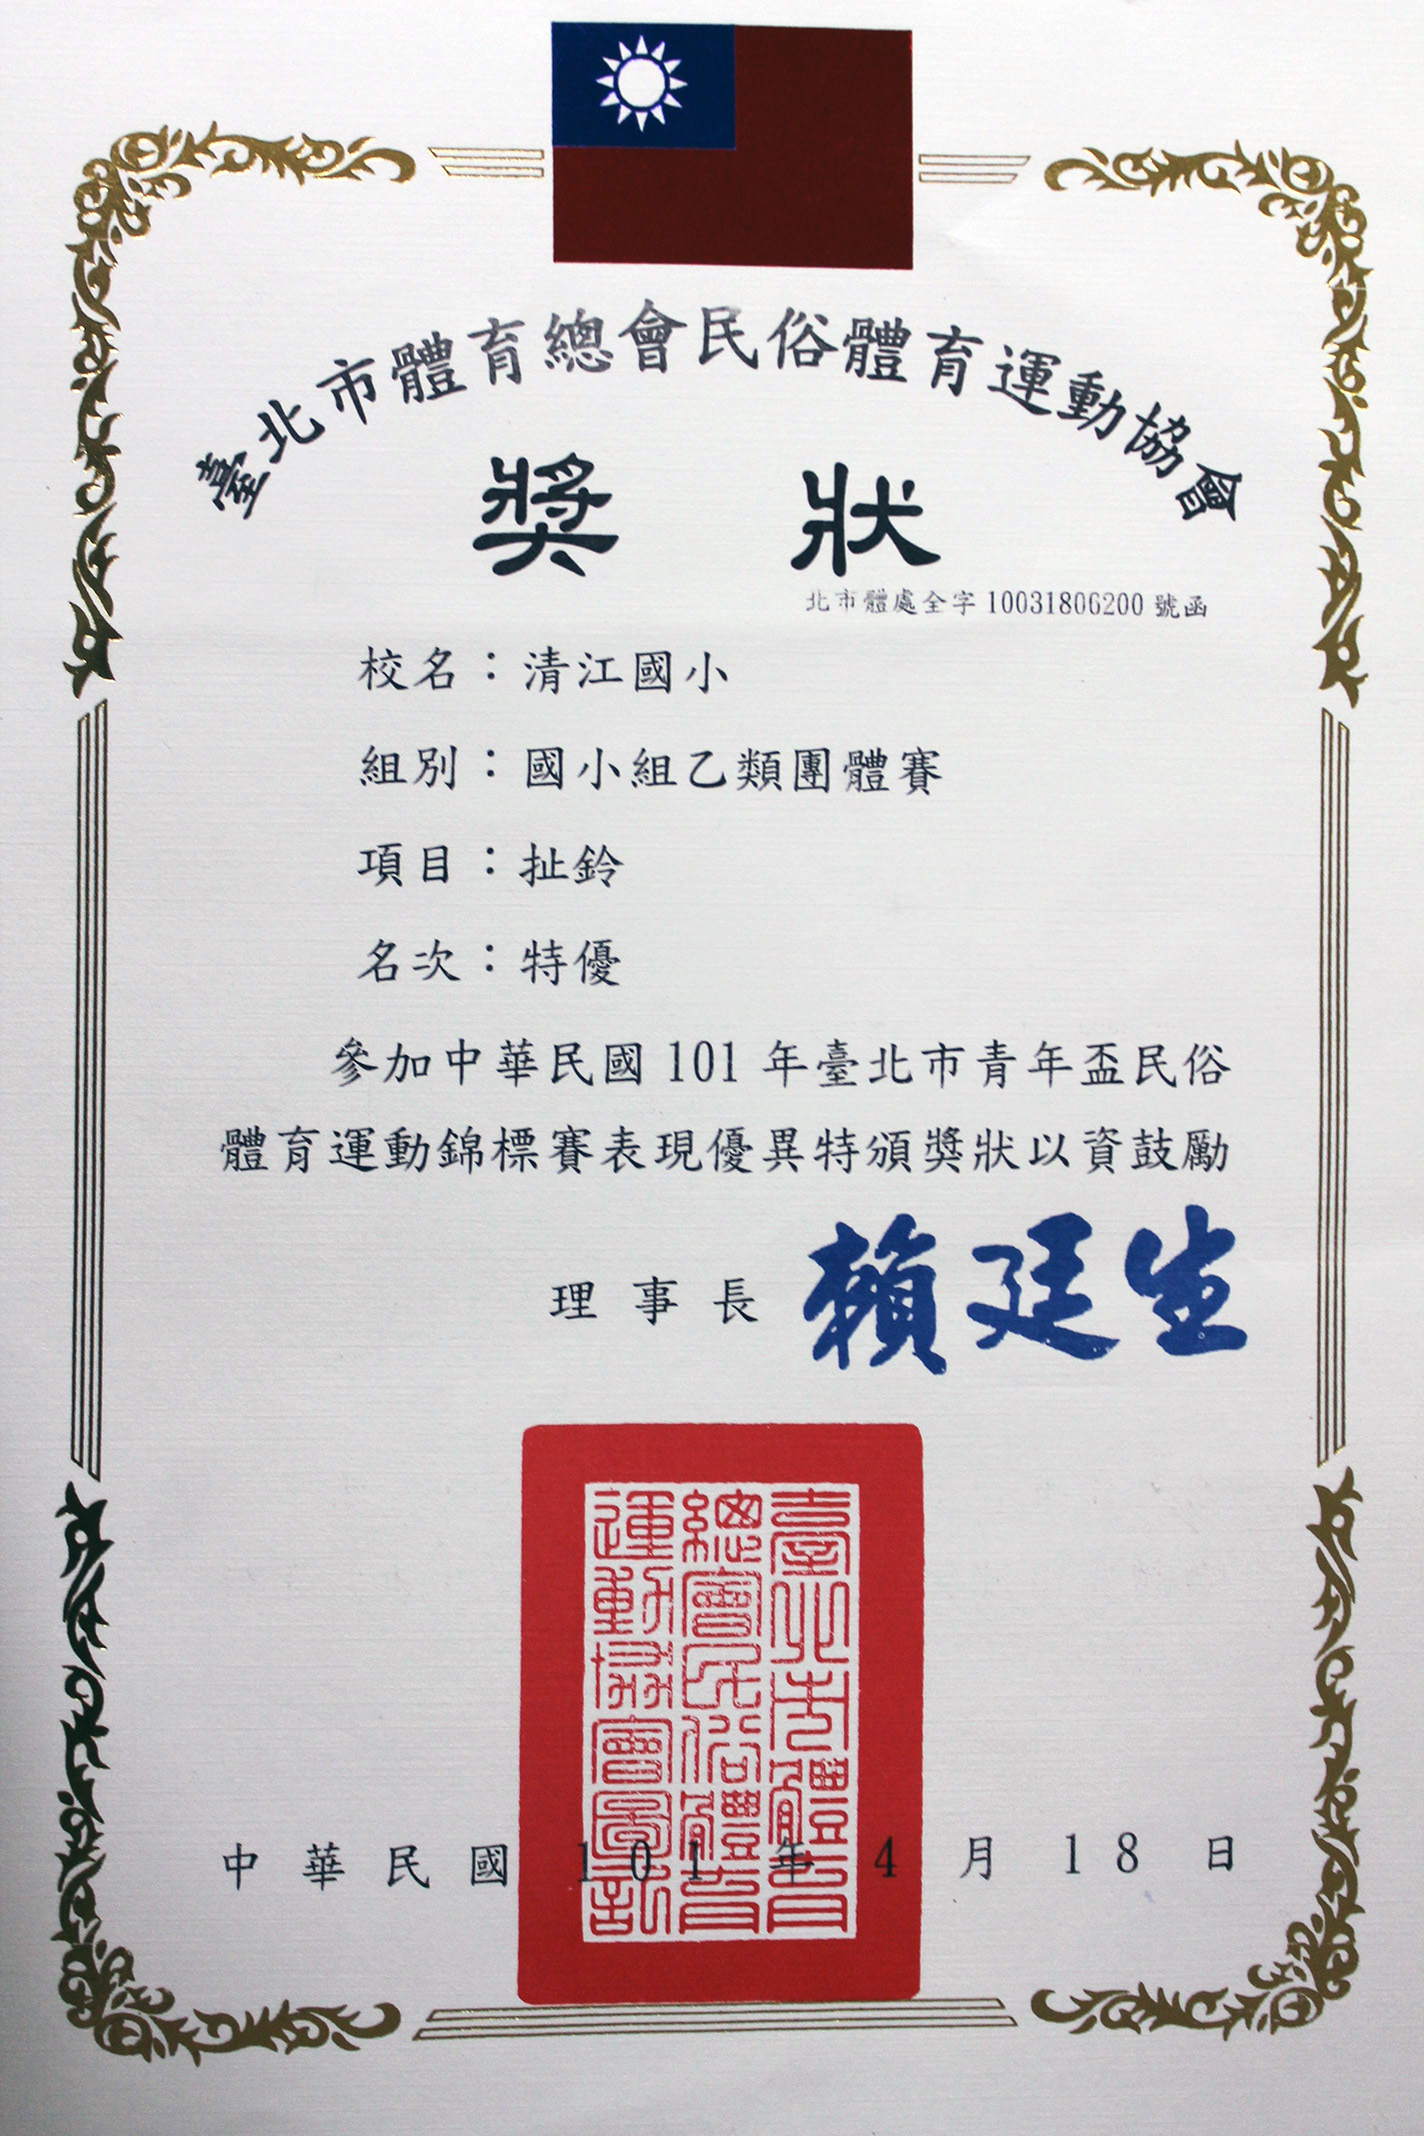 臺北市體育總會民俗體育運動協會
獎狀
北市體處全字10031806200號函
校名：清江國小
組別：國小組乙類團體賽
項目：扯鈴
名次：特優
參加中華民國101年臺北市青年盃民俗
體育運動錦標賽表現優異特頒獎狀以資鼓勵
理事長 賴廷生
臺北市體育
總會民俗體育
運動協會圖記
中華民國101年4月18日